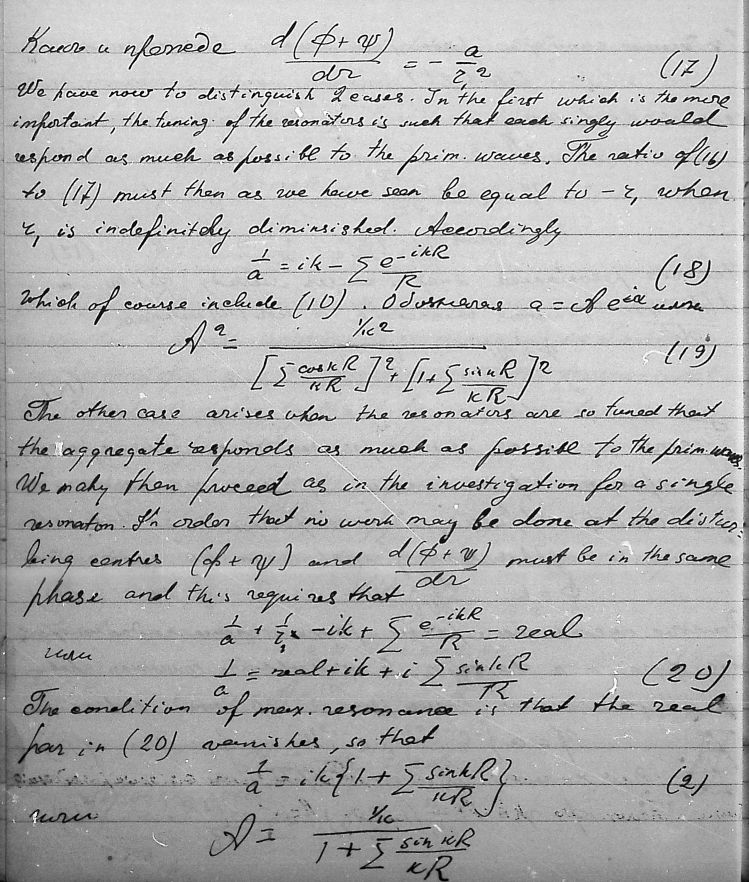 Како и прежде d(ϕ+ψ)/dr = − a/r² (17)
We have now to distinguish 2 cases. In the first which is the more
important, the tuning of the resonators is such that each singly would
respond as much as possibl to the prim. waves. The ratio of (16)
to (17) must then as we have seen be equal to − r, when
r, is indefinitely diminsished. Accordingly
1/a = ik − Σ e^{−ikR}/R (18)
which of course include (10). a = A e^{iα} или
A² = (1/k²) / ([Σ cos kR/kR]² + [1 + Σ sin kR/kR]²) (19)
The other case arises when the resonators are so tuned that
the aggregate responds as much as possibl to the prim. waves.
We mahy then proceed as in the investigation for a single
resonator. In order that no work may be done at the distur-
bing centres (ϕ+ψ) and d(ϕ+ψ)/dr must be in the same
phase and this requires that
1/a + 1/r, − ik + Σ e^{−ikR}/R = real
или
1/a = real + ik + i Σ sin kR/R (20)
The condition of max. resonance is that the real
par in (20) vanishes, so that
1/a = ik {1 + Σ sin kR/kR} (2)
или
A = (1/k) / (1 + Σ sin kR/kR)